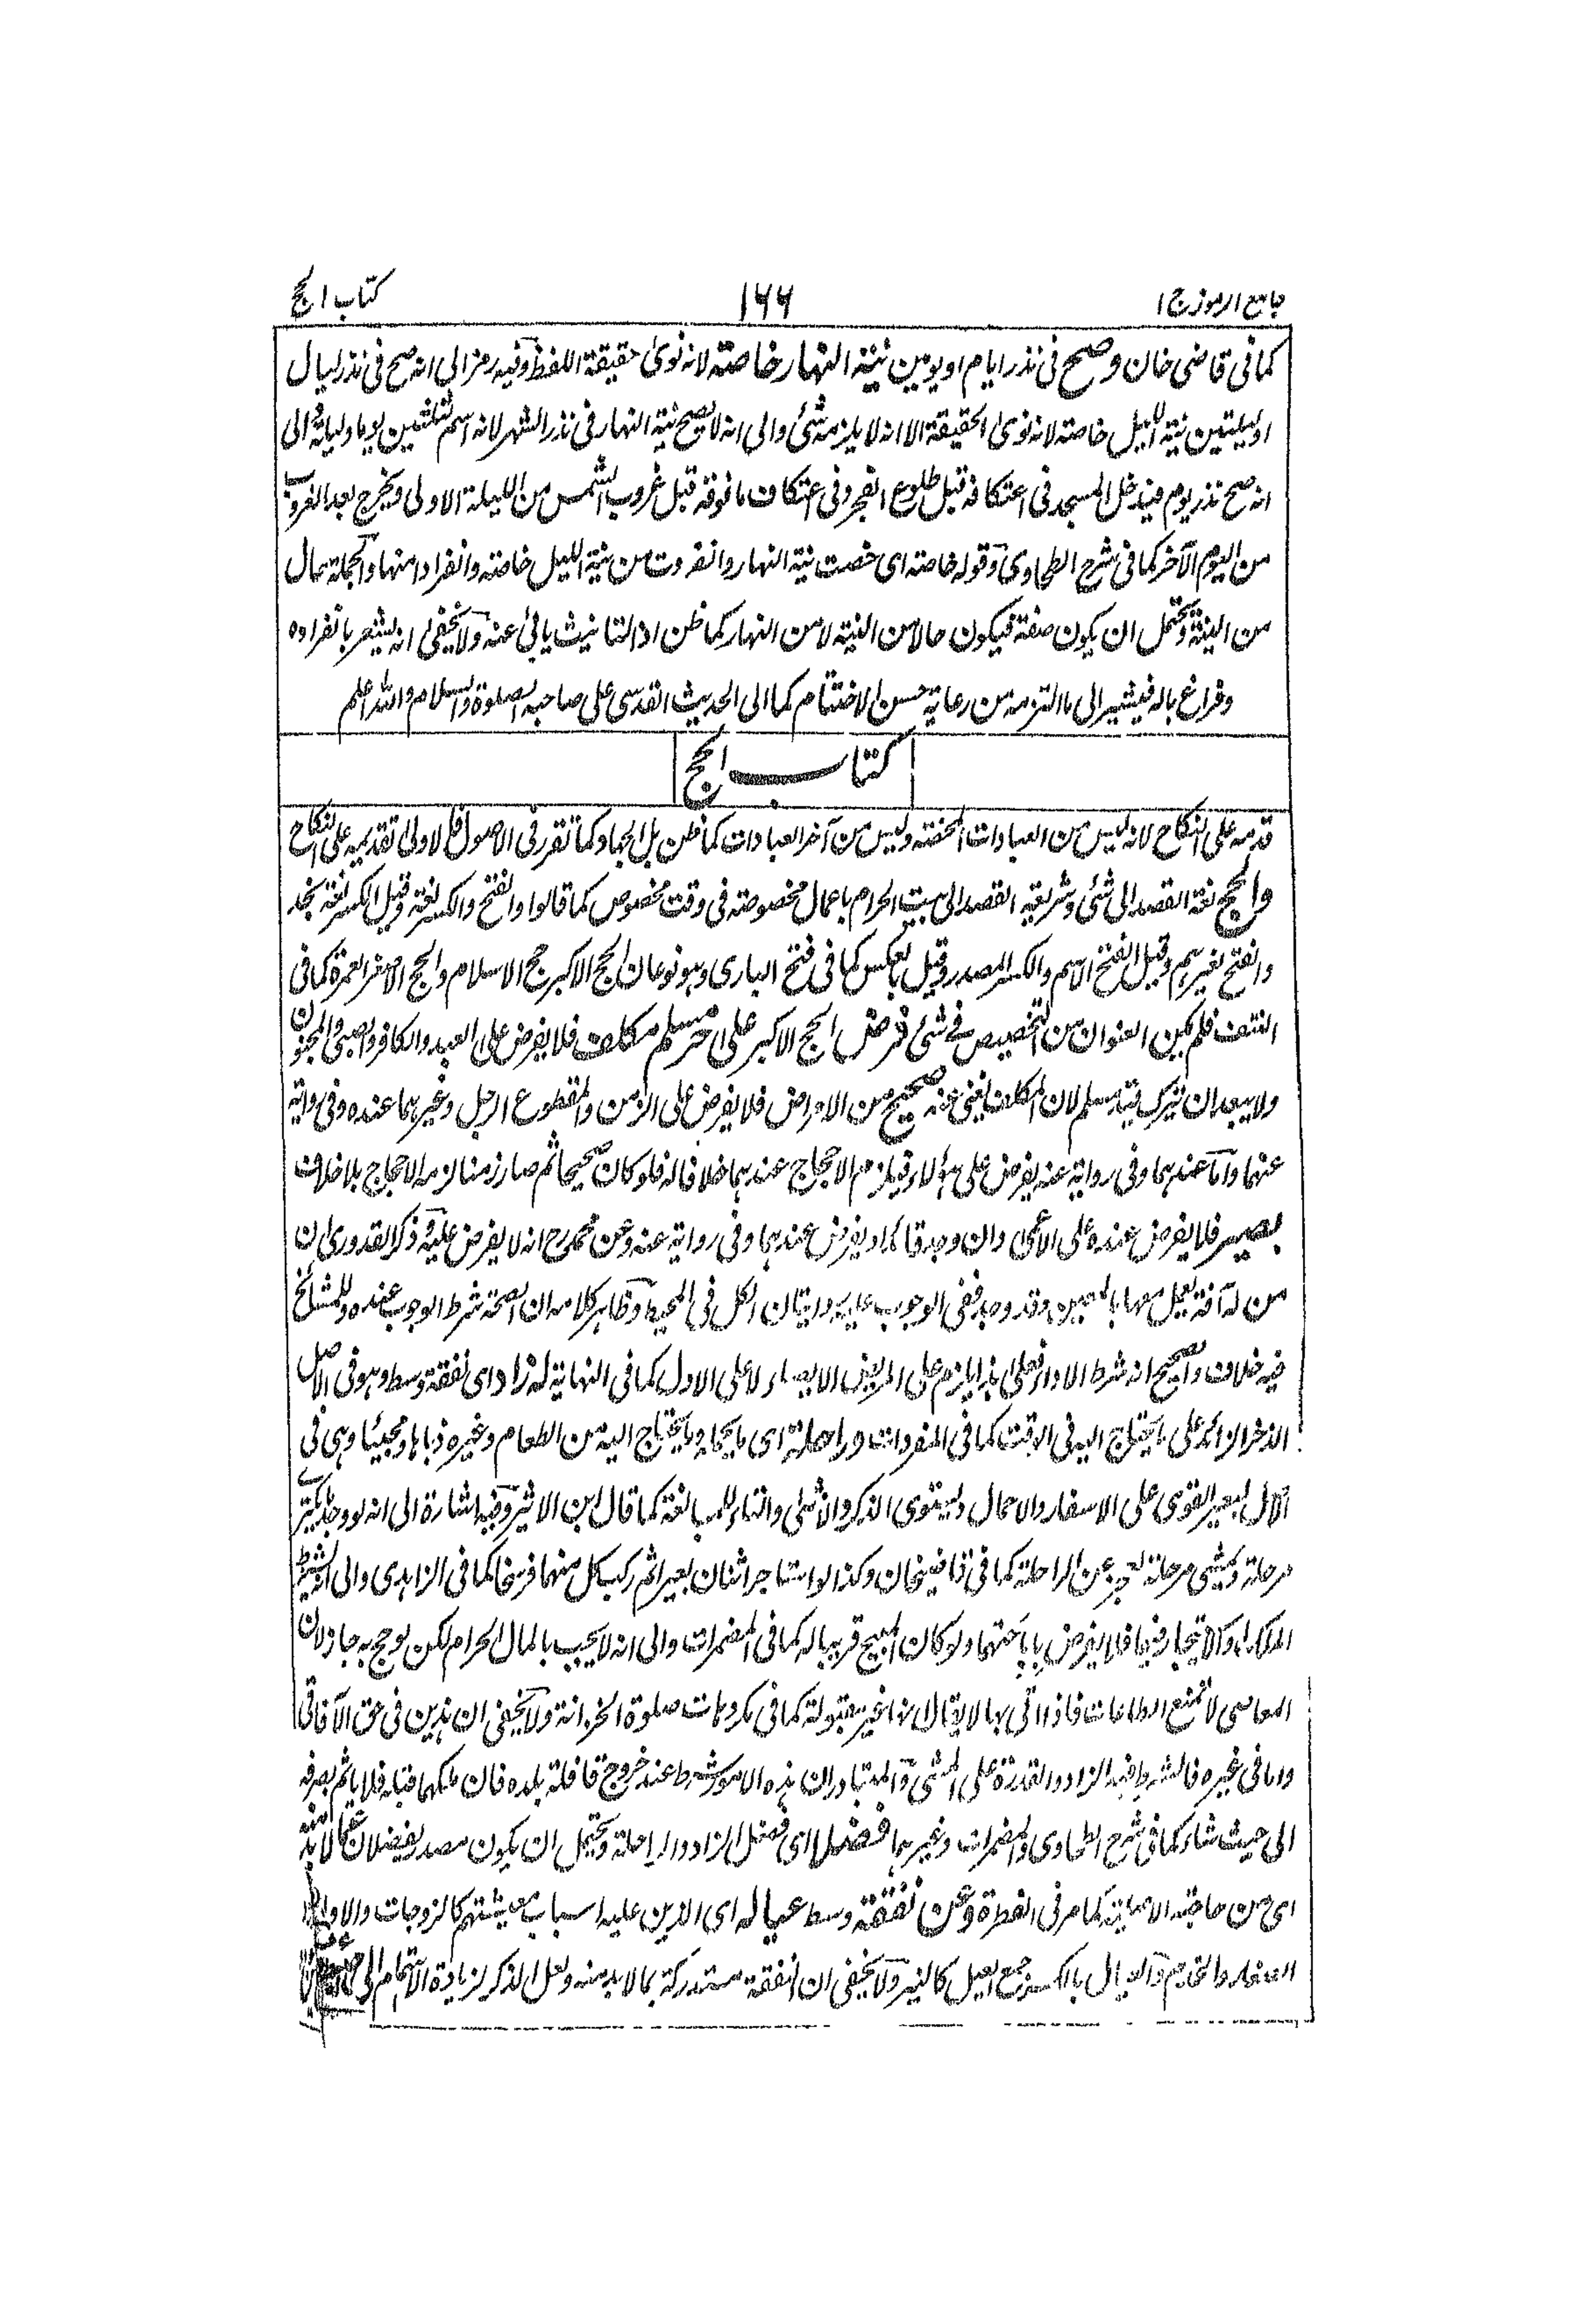 جامع الرموز ج ١
١٦٦
كتاب الحج
كما فى قاضى خان وصح فى نذر ايام او يومين نية النهار خاصة لانه نوى حقيقة اللفظ وفيه رمز الى انه صح فى نذر ليال
او ليلتين نية الليل خاصة لانه نوى الحقيقة الا انه لا يلزمه شئ والى انه لا يصح نية النهار فى نذر الشهر لانه اسم لثلثين يوما وليلة والى
انه صح نذر يوم فيدخل المسجد فى اعتكافه قبل طلوع الفجر وفى اعتكاف ما فوقه قبل غروب الشمس من الليلة الاولى ويخرج بعد الغروب
من اليوم الآخر كما فى شرح الطحاوى وقوله خاصة اى خصت نية النهار وانفردت من نية الليل خاصة وانفرادا منها والجملة حال
من النية ويحتمل ان يكون صفة فيكون حالا من النية لا من النهار كما ظن اذ التانيث يابى عنه ولا يخفى انه يشعر بانفراده
وفراغ باله فيشير الى ما التزمه من رعاية حسن الاختتام كما الى الحديث القدسى على صاحبه الصلوة والسلام والله اعلم
كتاب الحج
قدمه على النكاح لانه ليس من العبادات المحضة وليس من آخر العبادات كما ظن بل الجهاد كما تقرر فى الاصول فالاولى تقديمه على النكاح
والحج لغة القصد الى شئ وشريعة القصد الى بيت الحرام باعمال مخصوصة فى وقت مخصوص كما قالوا والفتح والكسر لغة وقيل الكسر لغة نجد
والفتح لغيرهم وقيل الفتح الاسم والكسر المصدر وقيل بالعكس كما فى فتح البارى وهو نوعان الحج الاكبر حج الاسلام والحج الاصغر العمرة كما فى
النتف فلم يكن العنوان من التخصيص فى شئ فرض الحج الاكبر على حر مسلم مكلف فلا يفرض على العبد والكافر والصبى والمجنون
ولا يبعد ان يترك قيد مسلم لان المكلف يغنى عنه صحيح من الامراض فلا يفرض على الزمن والمقطوع الرجل وغيرهما عنده وفى رواية
عنهما واما عندهما وفى رواية عنه يفرض على هؤلاء فيلزم الاحجاج عندهما خلافا له فلو كان صحيحا ثم صار زمنا لزمه الاحجاج بلا خلاف
بصير فلا يفرض عنده على الاعمى وان وجد قائدا ويفرض عندهما وفى رواية عنه وعن محمد رح انه لا يفرض عليه وذكر القدورى ان
من له آفة يعمل معها بالمعين وقد وجد ففى الوجوب عليه روايتان الكل فى المحيط وظاهر كلامه ان الصحة شرط الوجوب عنده وللمشائخ
فيه خلاف والصحيح انه شرط الاداء فعلى هذا يلزم على المريض الايصاء لا على الاول كما فى النهاية له زاد اى نفقة وسط وهو فى الاصل
الذخر الزائد على ما يحتاج اليه فى الوقت كما فى المفردات وراحلة اى ما يحمله وما يحتاج اليه من الطعام وغيره ذهابا ومجيئا وهى فى
الاصل البعير القوى على الاسفار والاحمال ويستوى الذكر والانثى والتاء للمبالغة كما قال ابن الاثير وفيه اشارة الى انه لو وجد ما يكترى
مرحلة ويمشى مرحلة لعجز عن الراحلة كما فى قاضيخان وكذا لو استاجر اثنان بعيرا ثم ركب كل منهما فرسخا كما فى الزاهدى والى انه يشترط
الملك او الايجار فيهما فلا يفرض باباحتهما ولو كان المبيح قريبا له كما فى المضمرات والى انه لا يجب بالمال الحرام لكن لو حج به جاز لان
المعاصى لا تمنع الطاعات فاذا اتى بها لا يقال انها غير مقبولة كما فى مكروهات صلوة الخزانة ولا يخفى ان هذين فى حق الآفاقى
واما فى غيره فالشرط فيه الزاد والقدرة على المشى والمتبادر ان هذه الامور شرط عند خروج قافلة بلده فان ملكهما قبله فلا ياثم بصرفه
الى حيث شاء كما فى شرح الطحاوى والمضمرات وغيرهما فضلا اى فضل الزاد والراحلة ويحتمل ان يكون مصدر يفضلان عما لا بد منه
اى من حاجته الاصلية كما مر فى الفطرة وعن نفقة وسط عياله اى الذين عليه اسباب معيشتهم كالزوجات والاولاد
الصغار والخدم والعيال بالكسر جمع العيل كالنير ولا يخفى ان النفقة مستدركة بما لا بد منه ولعل الذكر لزيادة الاهتمام الى